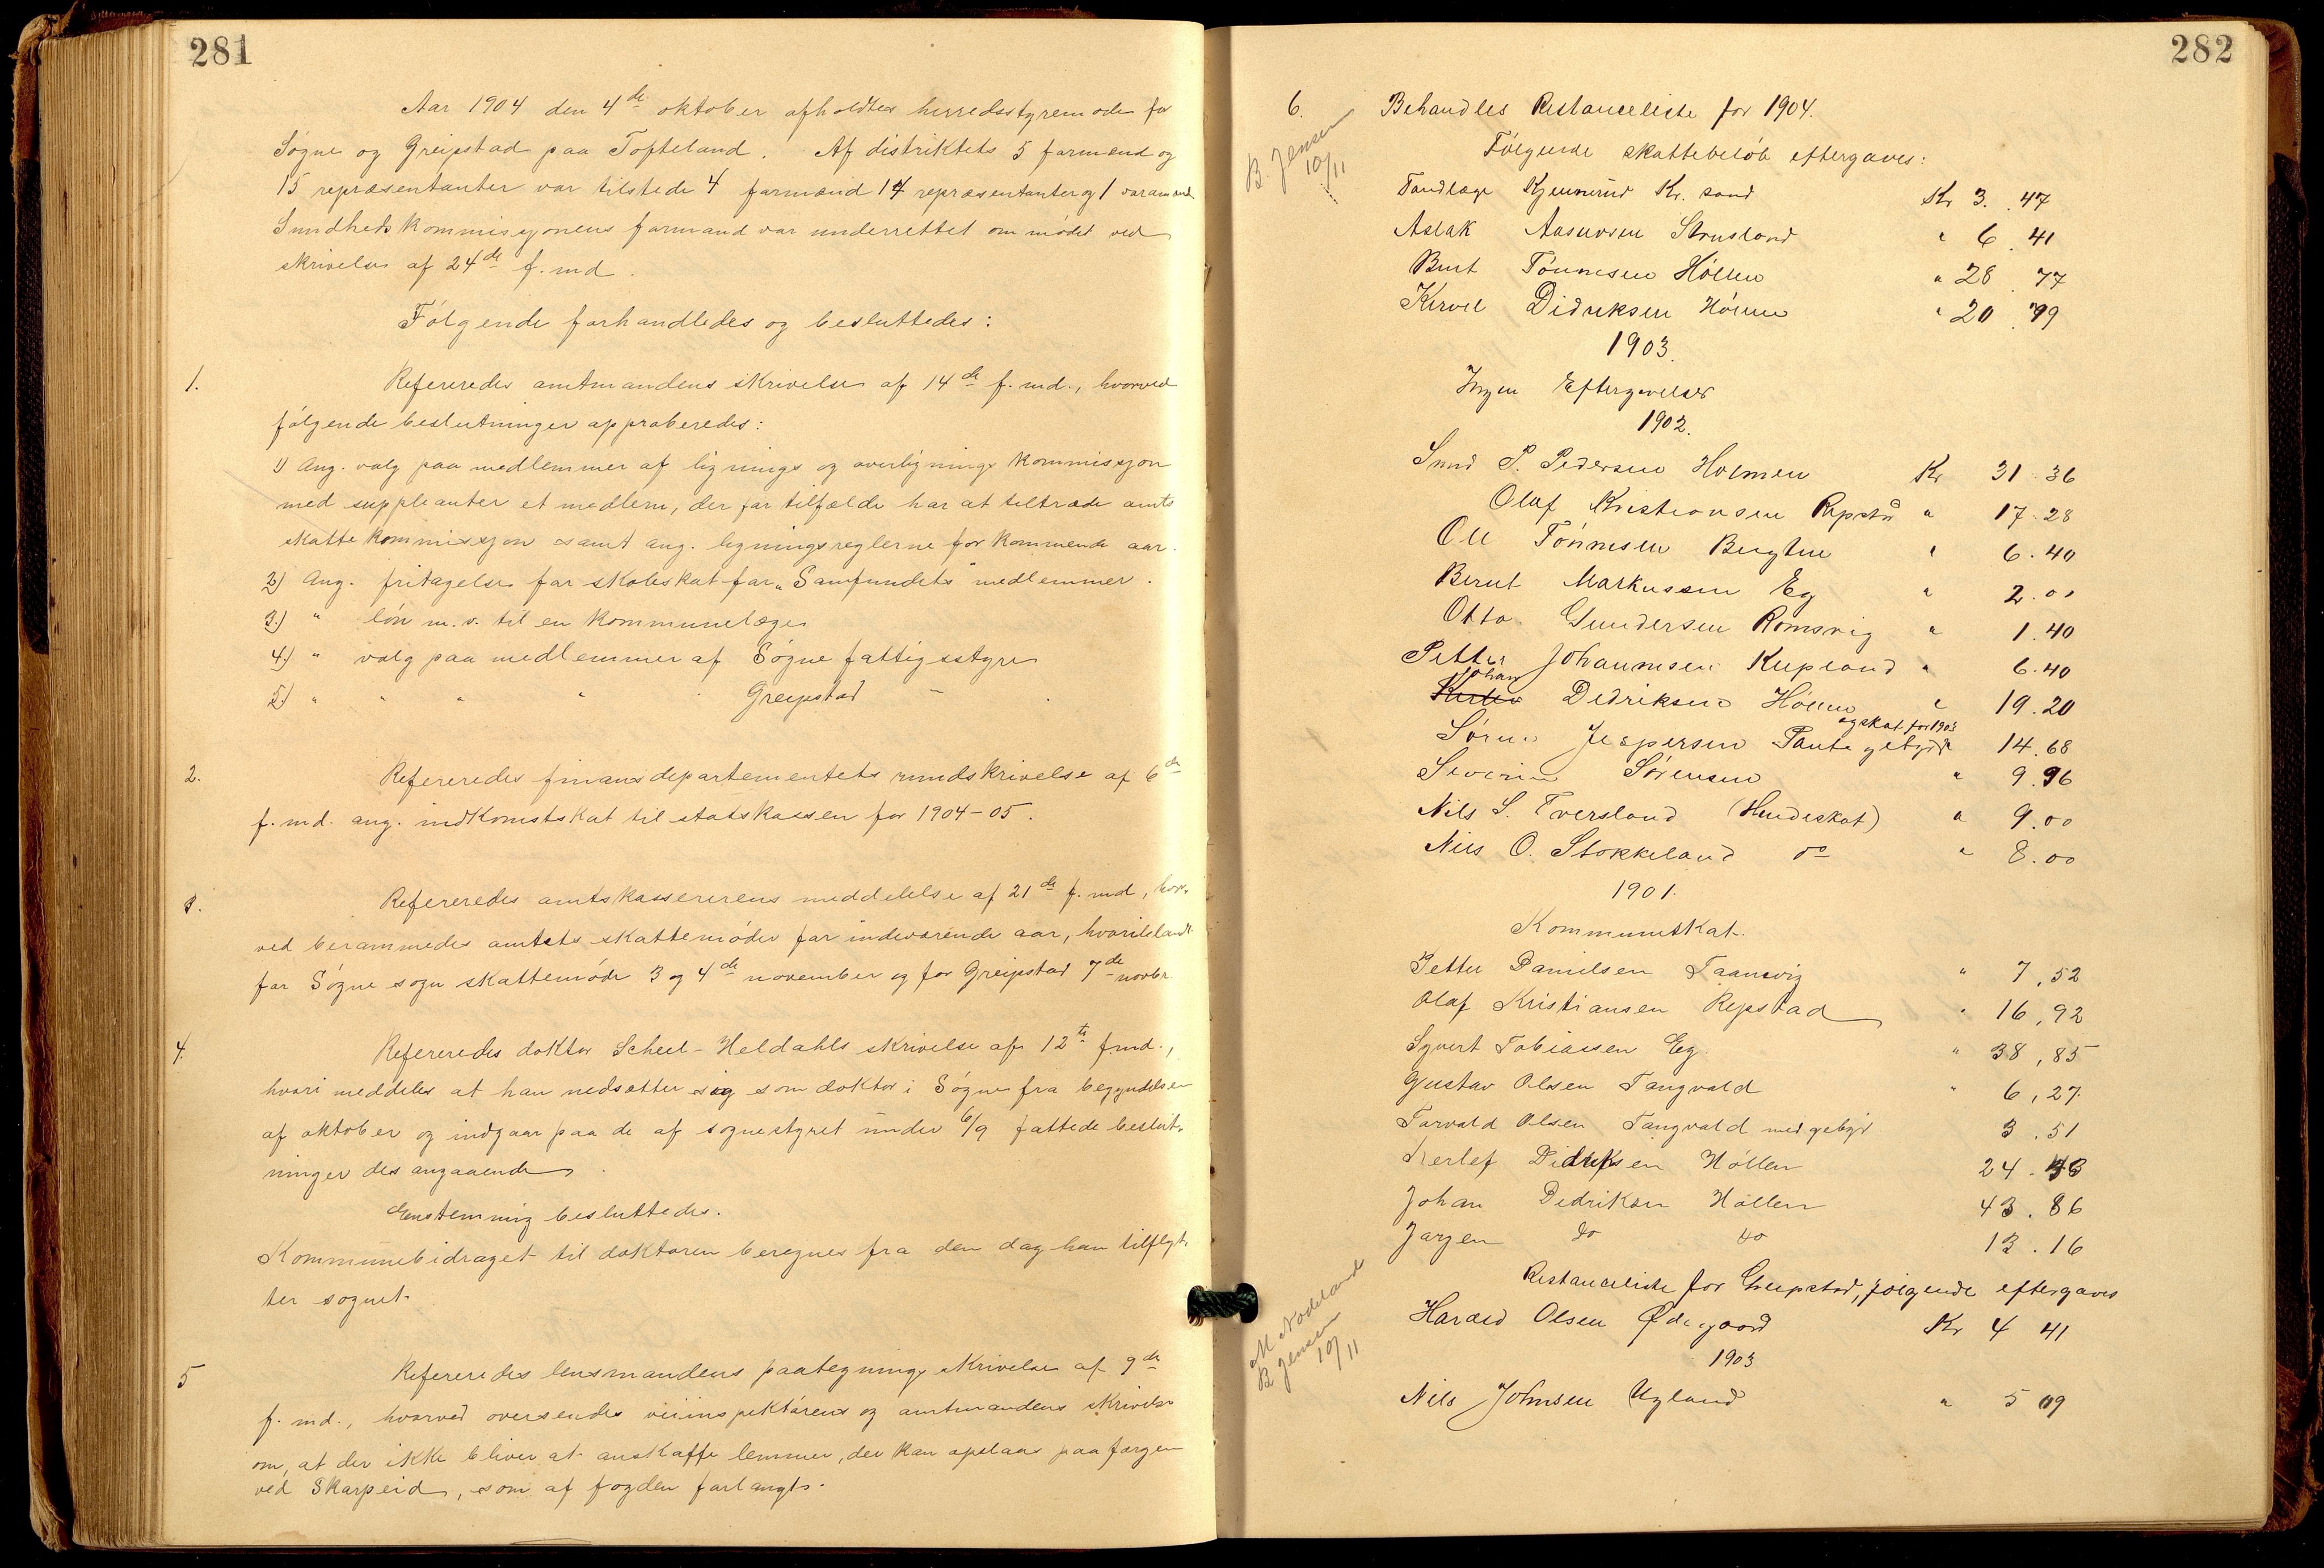 281
Aar 1904 den 4de oktober afholdtes herredsstyremøde for
Søgne og Greipstad paa Tofteland. Af distriktets 5 formænd og
15 repræsentanter var tilstede 4 formænd 14 repræsentanter og 1 varamand
Sundhetskommisjonens formand var underrettet om mødet ved
skrivelse af 24de f. md.
Følgende forhandledes og besluttedes:
1. Refereredes amtmandens skrivelse af 14de f. md., hvorved
følgende beslutninger approberedes:
1) Ang. valg paa medlemmer af lignings og overlignings kommissjon
med suppleanter et medlem, der for tilfælde har at tiltræde amts
skattekommissjon samt ang. ligningsreglerne for kommende aar.
2) Ang. fritagelse for skoleskat for "Samfundets" medlemmer.
3.) " løn m.v. til en kommunelæge
4.) " valg paa medlemmer af Søgne fattigsstyre
5.) " " " " Greipstad "
2. Refereredes finansdepartementets rundskrivelse af 6de
f. md. ang. indkomstskat til statskassen for 1904-05.
3. Refereredes amtskassererens meddelelse af 21de f. md, hvor-
ved berammedes amtets skattemøder for indeværende aar, hvoriblandt
for Søgne sogn skattemøde 3 og 4de november og for Greipstad 7de novbr
4. Refereredes doktor Scheel-Heldahls skrivelse af 12te f md.,
hvori meddeles at han nedsætter sig som doktor i Søgne fra begyndelsen
af oktober og indgaar paa de af sognestyret under 6/9 fattede beslut-
ninger des angaaende.
Enstemmig besluttedes.
Kommunebidraget til doktoren beregnes fra den dag han tilflyt-
ter sognet.
5 Refereredes lensmandens paategnings skrivelse af 9de
f. md., hvorved oversendes veiinspektørens og amtmandens skrivelse
om, at der ikke bliver at anskaffe lemmer, der kan opslaaes paa færgen
ved Skarpeid, som af fogden forlangt.
282
6. Behandles Restanceliste for 1904.
B. Jensen
10/11
Følgende skattebeløb eftergaves:
Tandlæge Kjennerud Kr. sand Kr 3. 47
Aslak Aasuvsen Strusland " 6. 41
Bent Tønnesen Høllen " 28. 77
Didriksen Høllen " 20. 79
1903.
Ingen Eftergivelser
1902.
P. Pedersen Holmen Kr 31.36
Olaf Kristiansen Repstad " 17.28
Ole Tønnesen " 6.40
Bernt Markussen Eg " 2.00
Otto Gundersen Romsvig " 1.40
Petter Johannesen Kupland " 6.40
Johan
Didriksen Høllen " 19.20
og skat for 1903
Søren Jespersen " 14.68
Severin Sørensen " 9.96
Nils S. Tversland (Hundeskat) " 9.00
Nils O. Stokkeland do " 8.00
1901.
Kommuneskat.
Petter Danielsen Taanevig " 7,52
Olaf Kristiansen Repstad " 16,92
Syvert Tobiassen Eg " 38,85
Gustav Olsen Tangvald " 6,27.
Torvald Olsen Tangvald med gebyr 3.51
Kerlef Didriksen Høllen 24.
Johan Didriksen Høllen 43.86
Jørgen do do 13.16
Restanceliste for Greipstad, følgende eftergaves
M Nodeland
B Jensen
10/11
Harald Olsen Ødegaard Kr 4 41
1903
Nils Johnsen Ugland " 5 09